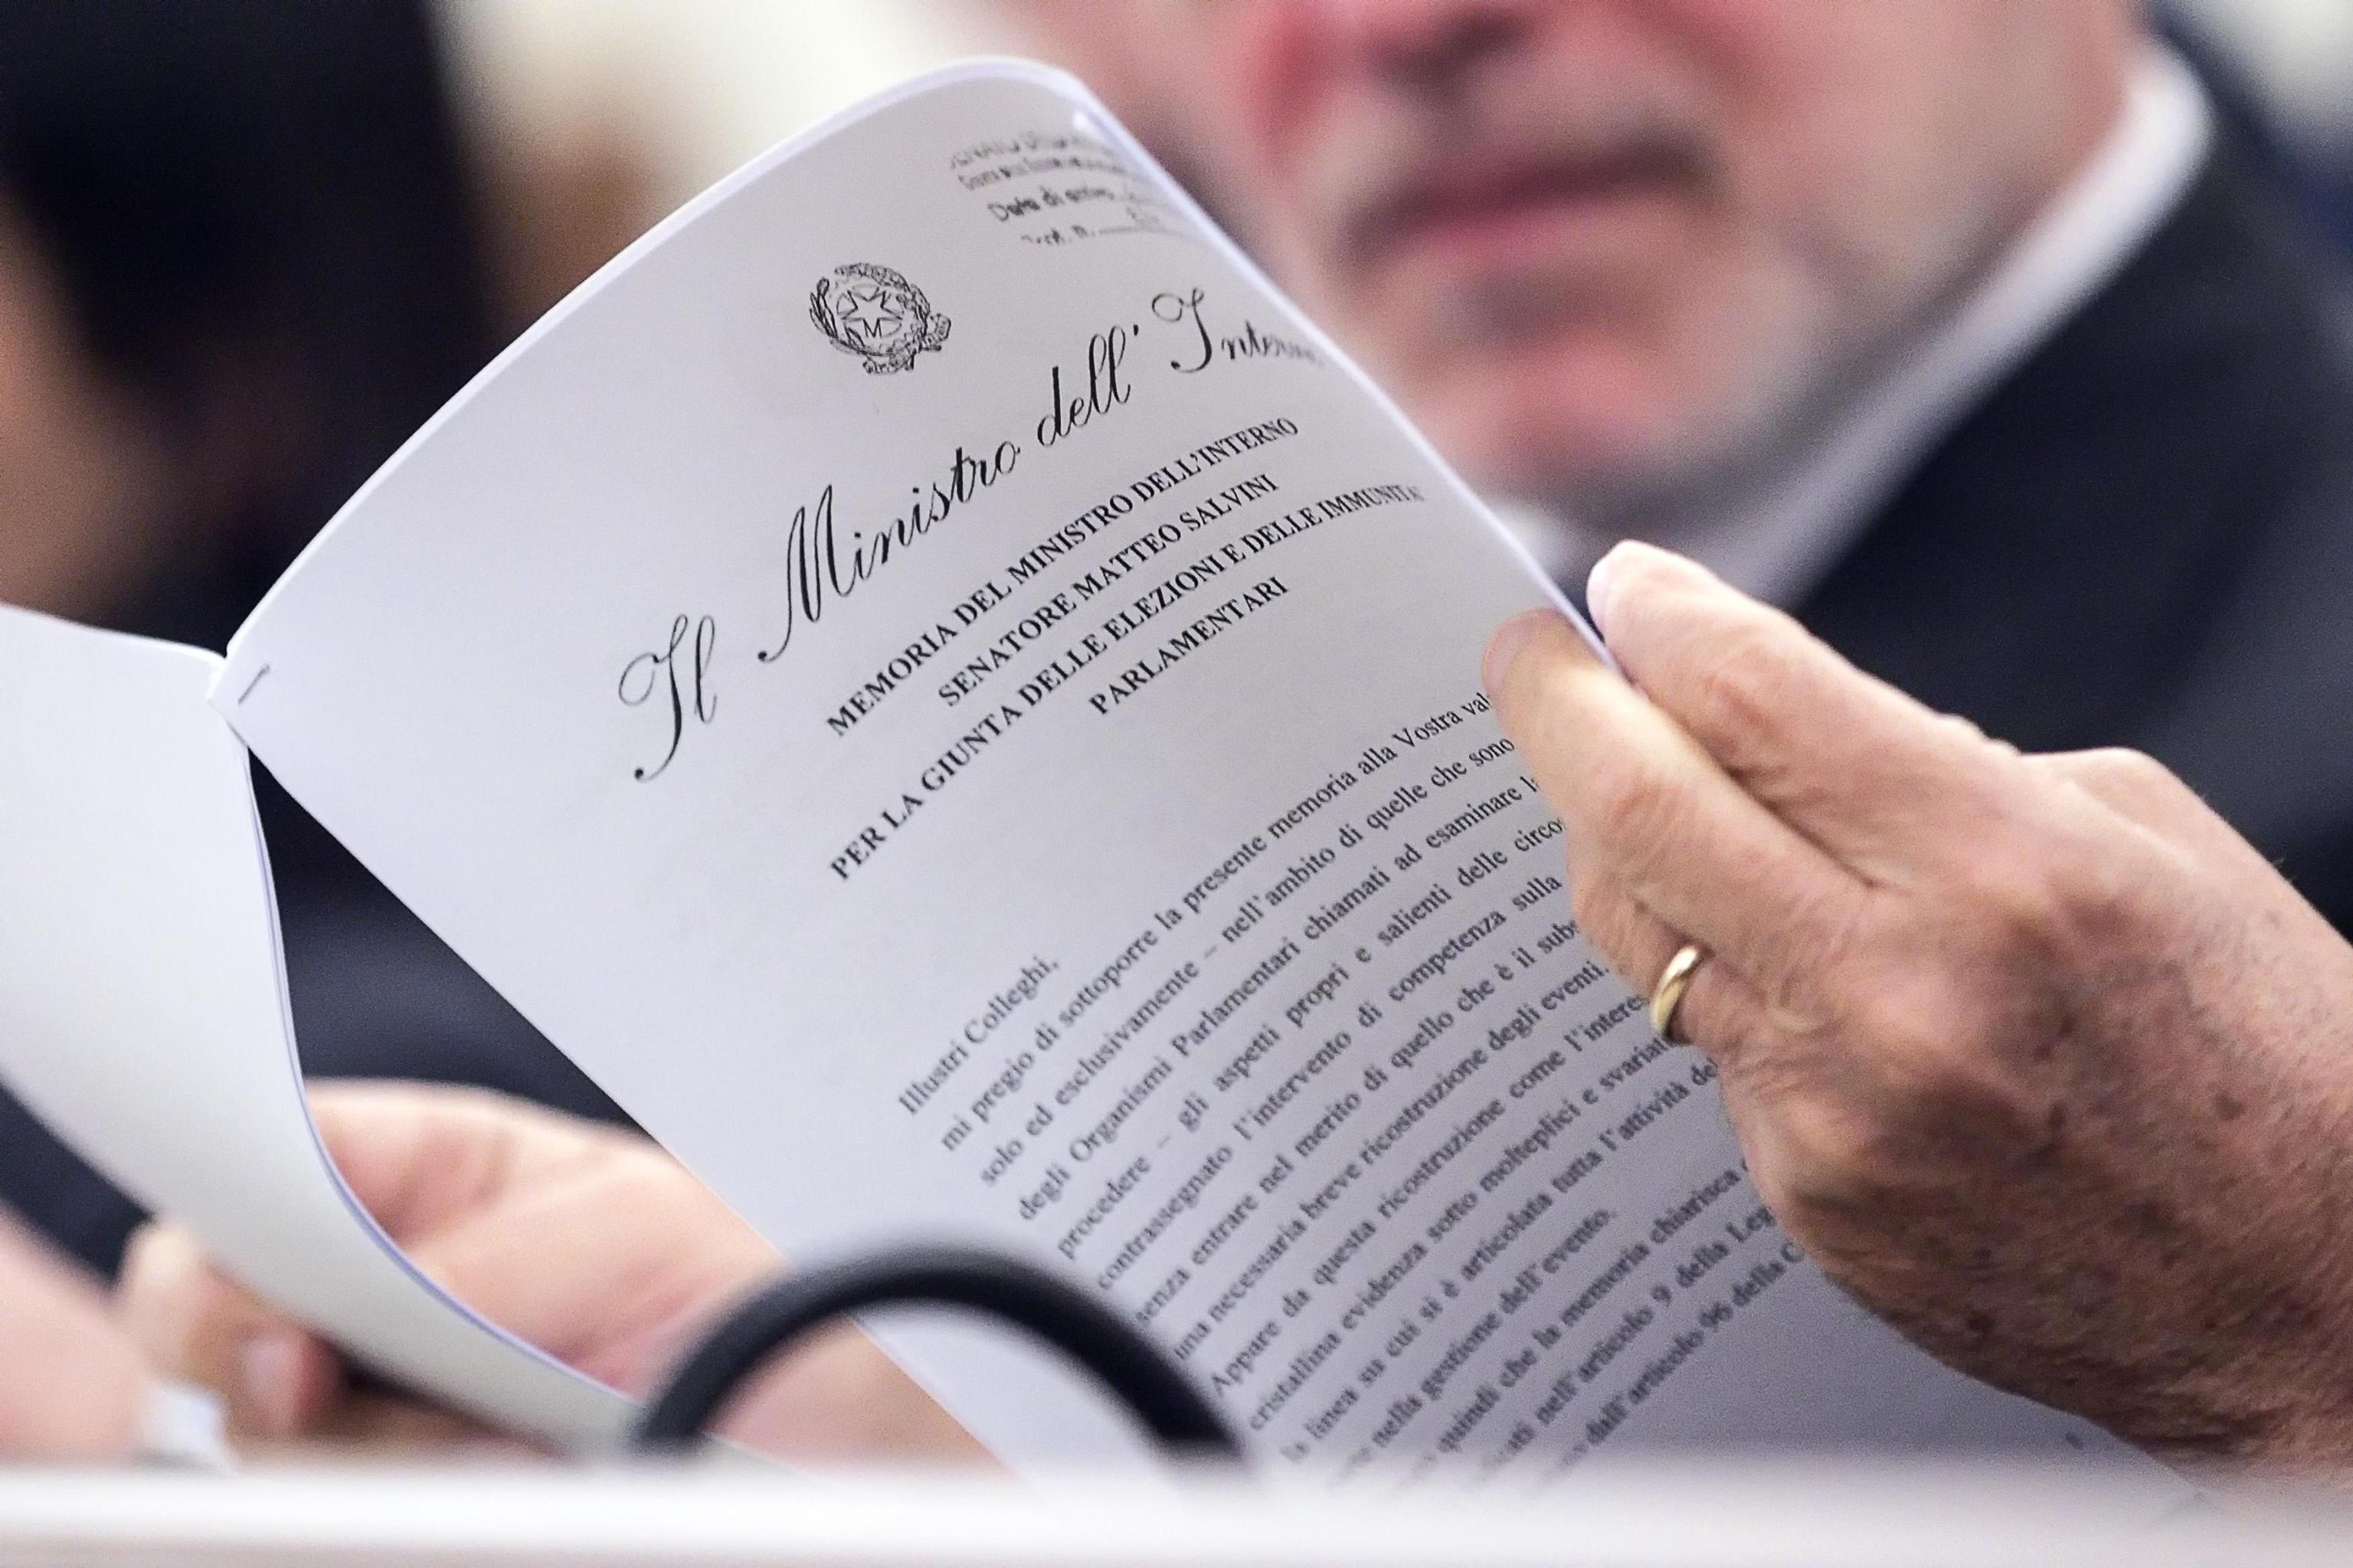 Data di arrivo
M
Il Ministro dell'Interno
MEMORIA DEL MINISTRO DELL'INTERNO
SENATORE MATTEO SALVINI
PER LA GIUNTA DELLE ELEZIONI E DELLE IMMUNITA'
PARLAMENTARI
Illustri Colleghi,
mi pregio di sottoporre la presente memoria alla Vostra
solo ed esclusivamente – nell'ambito di quelle che sono
degli Organismi Parlamentari chiamati ad esaminare
procedere – gli aspetti propri e salienti delle
contrassegnato l'intervento di competenza sulla
senza entrare nel merito di quello che è il
una necessaria breve ricostruzione degli eventi.
Appare da questa ricostruzione come
cristallina evidenza sotto molteplici e
la linea su cui si è articolata tutta l'attività
nella gestione dell'evento.
quindi che la memoria chiarisca
nell'articolo 9 della
dall'articolo 96 della